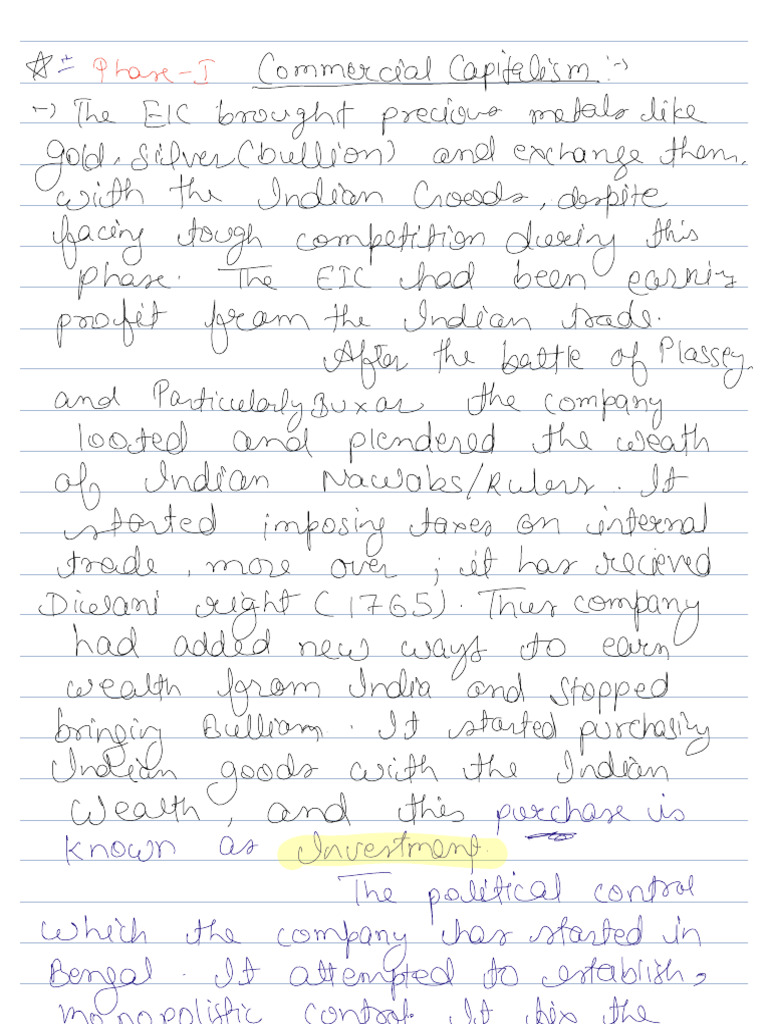 ☆ Phase-I Commercial Capitalism :-
-) The EIC brought precious metals like
gold, silver (bullion) and exchange them,
with the Indian Goods, despite
facing tough competition during this
phase. The EIC had been earning
profit from the Indian trade.
After the battle of Plassey,
and Particularly Buxar the company
looted and plendered the weath
of Indian Nawabs/Rulers. It
started imposing taxes on internal
trade, more over ; it has recieved
Diwani right (1765). Thus company
had added new ways to earn
wealth from India and stopped
bringing Bullian. It started purchasing
Indian goods with the Indian
Wealth, and this purchase is
known as Investment.
The political control
which the company has started in
Bengal. It attempted to establish,
monopolistic control. It fix the